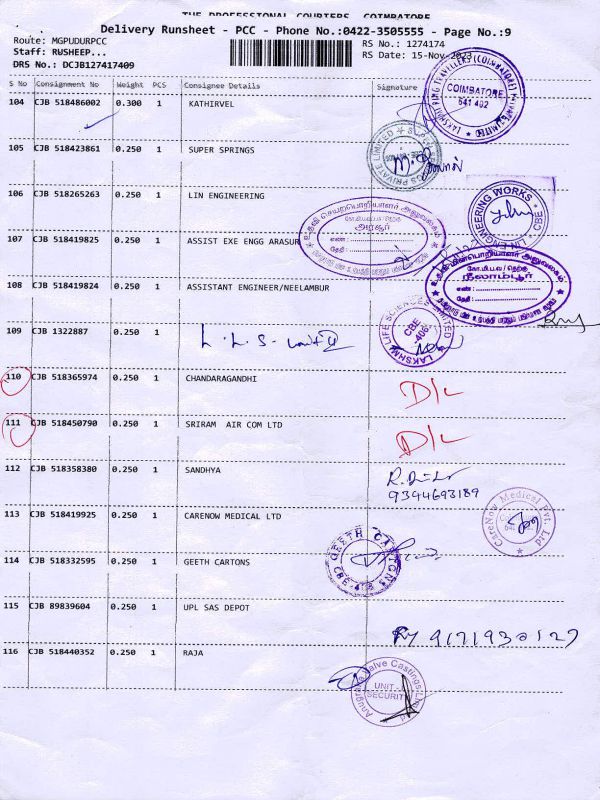 THE PROFESSIONAL COURIERS, COIMBATORE
Delivery Runsheet - PCC - Phone No.:0422-3505555 - Page No.:9
Route: MGPUDURPCC
Staff: RUSHEEP...
DRS No.: DCJB127417409
RS No.: 1274174
RS Date: 15-Nov-2023
S No Consignment No Weight PCS Consignee Details Signature
104 CJB 518486002 0.300 1 KATHIRVEL
COIMBATORE
641 402
105 CJB 518423861 0.250 1 SUPER SPRINGS
PRIVATE LIMITED
106 CJB 518265263 0.250 1 LIN ENGINEERING
LIN ENGINEERING WORKS
CBE
107 CJB 518419825 0.250 1 ASSIST EXE ENGG ARASUR
உதவி செயற்பொறியாளர் அலுவலகம்
அரசூர்
எண் :
தேதி :
108 CJB 518419824 0.250 1 ASSISTANT ENGINEER/NEELAMBUR
உதவி மின்பொறியாளர் அலுவலகம்
கோ.மி.ப.வ / தெற்கு
நீலாம்பூர்
எண் :
தேதி :
109 CJB 1322887 0.250 1 L.L.S-unit
LAKSHMI LIFE SCIENCES LIMITED
CBE
110 CJB 518365974 0.250 1 CHANDARAGANDHI D/L
111 CJB 518450790 0.250 1 SRIRAM AIR COM LTD D/L
112 CJB 518358380 0.250 1 SANDHYA
9344693189
113 CJB 518419925 0.250 1 CARENOW MEDICAL LTD
CareNow Medical Pvt. Ltd
114 CJB 518332595 0.250 1 GEETH CARTONS
GEETH CARTONS
115 CJB 89839604 0.250 1 UPL SAS DEPOT
9171930127
116 CJB 518440352 0.250 1 RAJA
Valve Castings
UNIT
SECURITY